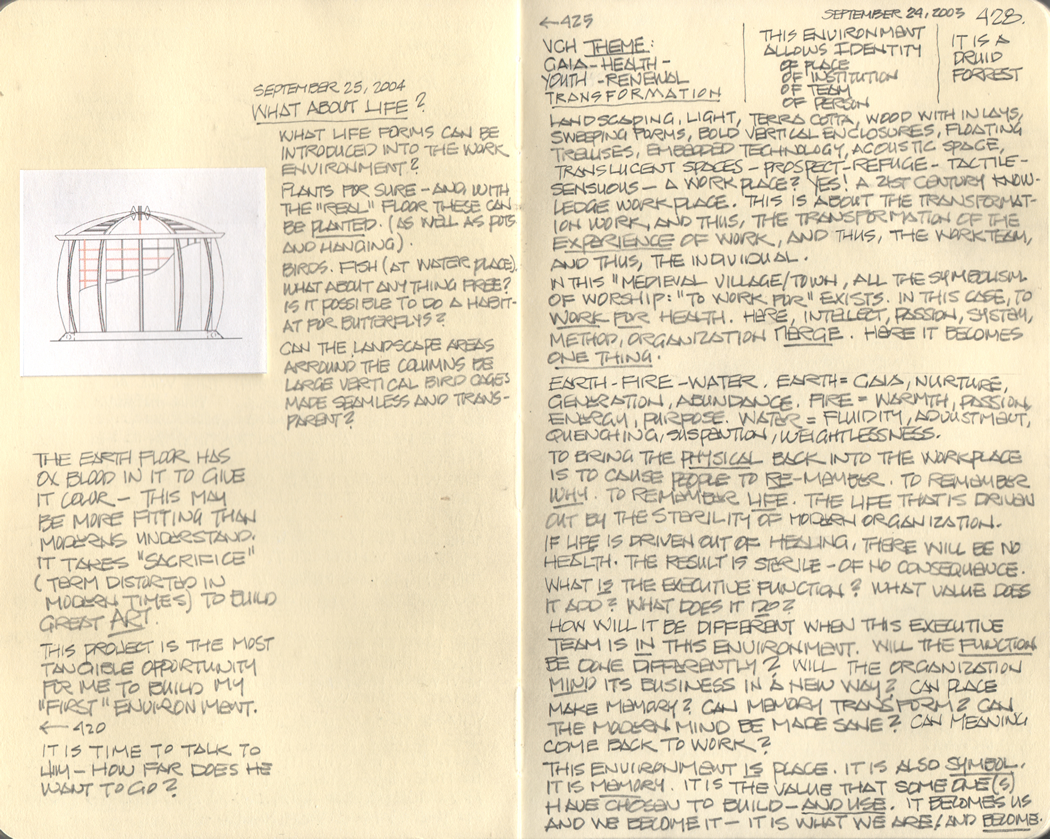 SEPTEMBER 25, 2004
WHAT ABOUT LIFE?
WHAT LIFE FORMS CAN BE
INTRODUCED INTO THE WORK
ENVIRONMENT?
PLANTS FOR SURE - AND WITH
THE "REAL" FLOOR THESE CAN
BE PLANTED. (AS WELL AS POTS
AND HANGING).
BIRDS. FISH (AT WATER PLACE).
WHAT ABOUT ANYTHING FREE?
IS IT POSSIBLE TO DO A HABIT-
AT FOR BUTTERFLYS?
CAN THE LANDSCAPE AREAS
ARROUND THE COLUMNS BE
LARGE VERTICAL BIRD CAGES
MADE SEAMLESS AND TRANS-
PARENT?
THE EARTH FLOOR HAS
OX BLOOD IN IT TO GIVE
IT COLOR - THIS MAY
BE MORE FITTING THAN
MODERNS UNDERSTAND.
IT TAKES "SACRIFICE"
(TERM DISTORTED IN
MODERN TIMES) TO BUILD
GREAT ART.
THIS PROJECT IS THE MOST
TANGIBLE OPPORTUNITY
FOR ME TO BUILD MY
"FIRST" ENVIRONMENT.
← 420
IT IS TIME TO TALK TO
HIM - HOW FAR DOES HE
WANT TO GO?
SEPTEMBER 24, 2003 428.
← 425
VCH THEME:
GAIA - HEALTH -
YOUTH - RENEWAL
TRANSFORMATION
THIS ENVIRONMENT
ALLOWS IDENTITY
OF PLACE
OF INSTITUTION
OF TEAM
OF PERSON
IT IS A
DRUID
FORREST
LANDSCAPING, LIGHT, TERRA COTTA, WOOD WITH INLAYS,
SWEEPING FORMS, BOLD VERTICAL ENCLOSURES, FLOATING
TRELLISES, EMBEDDED TECHNOLOGY, ACOUSTIC SPACE,
TRANSLUCENT SPACES - PROSPECT-REFUGE - TACTILE -
SENSUOUS - A WORK PLACE? YES! A 21ST CENTURY KNOW-
LEDGE WORKPLACE. THIS IS ABOUT THE TRANSFORMAT-
ION WORK, AND THUS, THE TRANSFORMATION OF THE
EXPERIENCE OF WORK, AND THUS, THE WORKTEAM,
AND THUS, THE INDIVIDUAL.
IN THIS "MEDIEVAL VILLAGE/TOWN, ALL THE SYMBOLISM
OF WORSHIP: "TO WORK FOR" EXISTS. IN THIS CASE, TO
WORK FOR HEALTH. HERE, INTELLECT, PASSION, SYSTEM,
METHOD, ORGANIZATION MERGE. HERE IT BECOMES
ONE THING.
EARTH - FIRE - WATER. EARTH = GAIA, NURTURE,
GENERATION, ABUNDANCE. FIRE = WARMTH, PASSION,
ENERGY, PURPOSE. WATER = FLUIDITY, ADJUSTMENT,
QUENCHING, SUSPENTION, WEIGHTLESSNESS.
TO BRING THE PHYSICAL BACK INTO THE WORKPLACE
IS TO CAUSE PEOPLE TO RE-MEMBER. TO REMEMBER
WHY. TO REMEMBER LIFE. THE LIFE THAT IS DRIVEN
OUT BY THE STERILITY OF MODERN ORGANIZATION.
IF LIFE IS DRIVEN OUT OF HEALING, THERE WILL BE NO
HEALTH. THE RESULT IS STERILE - OF NO CONSEQUENCE.
WHAT IS THE EXECUTIVE FUNCTION? WHAT VALUE DOES
IT ADD? WHAT DOES IT DO?
HOW WILL IT BE DIFFERENT WHEN THIS EXECUTIVE
TEAM IS IN THIS ENVIRONMENT. WILL THE FUNCTION
BE DONE DIFFERENTLY? WILL THE ORGANIZATION
MIND ITS BUSINESS IN A NEW WAY? CAN PLACE
MAKE MEMORY? CAN MEMORY TRANSFORM? CAN
THE MODERN MIND BE MADE SANE? CAN MEANING
COME BACK TO WORK?
THIS ENVIRONMENT IS PLACE. IT IS ALSO SYMBOL.
IT IS MEMORY. IT IS THE VALUE THAT SOME ONE(S)
HAVE CHOSEN TO BUILD - AND USE. IT BECOMES US
AND WE BECOME IT - IT IS WHAT WE ARE! AND BECOME.